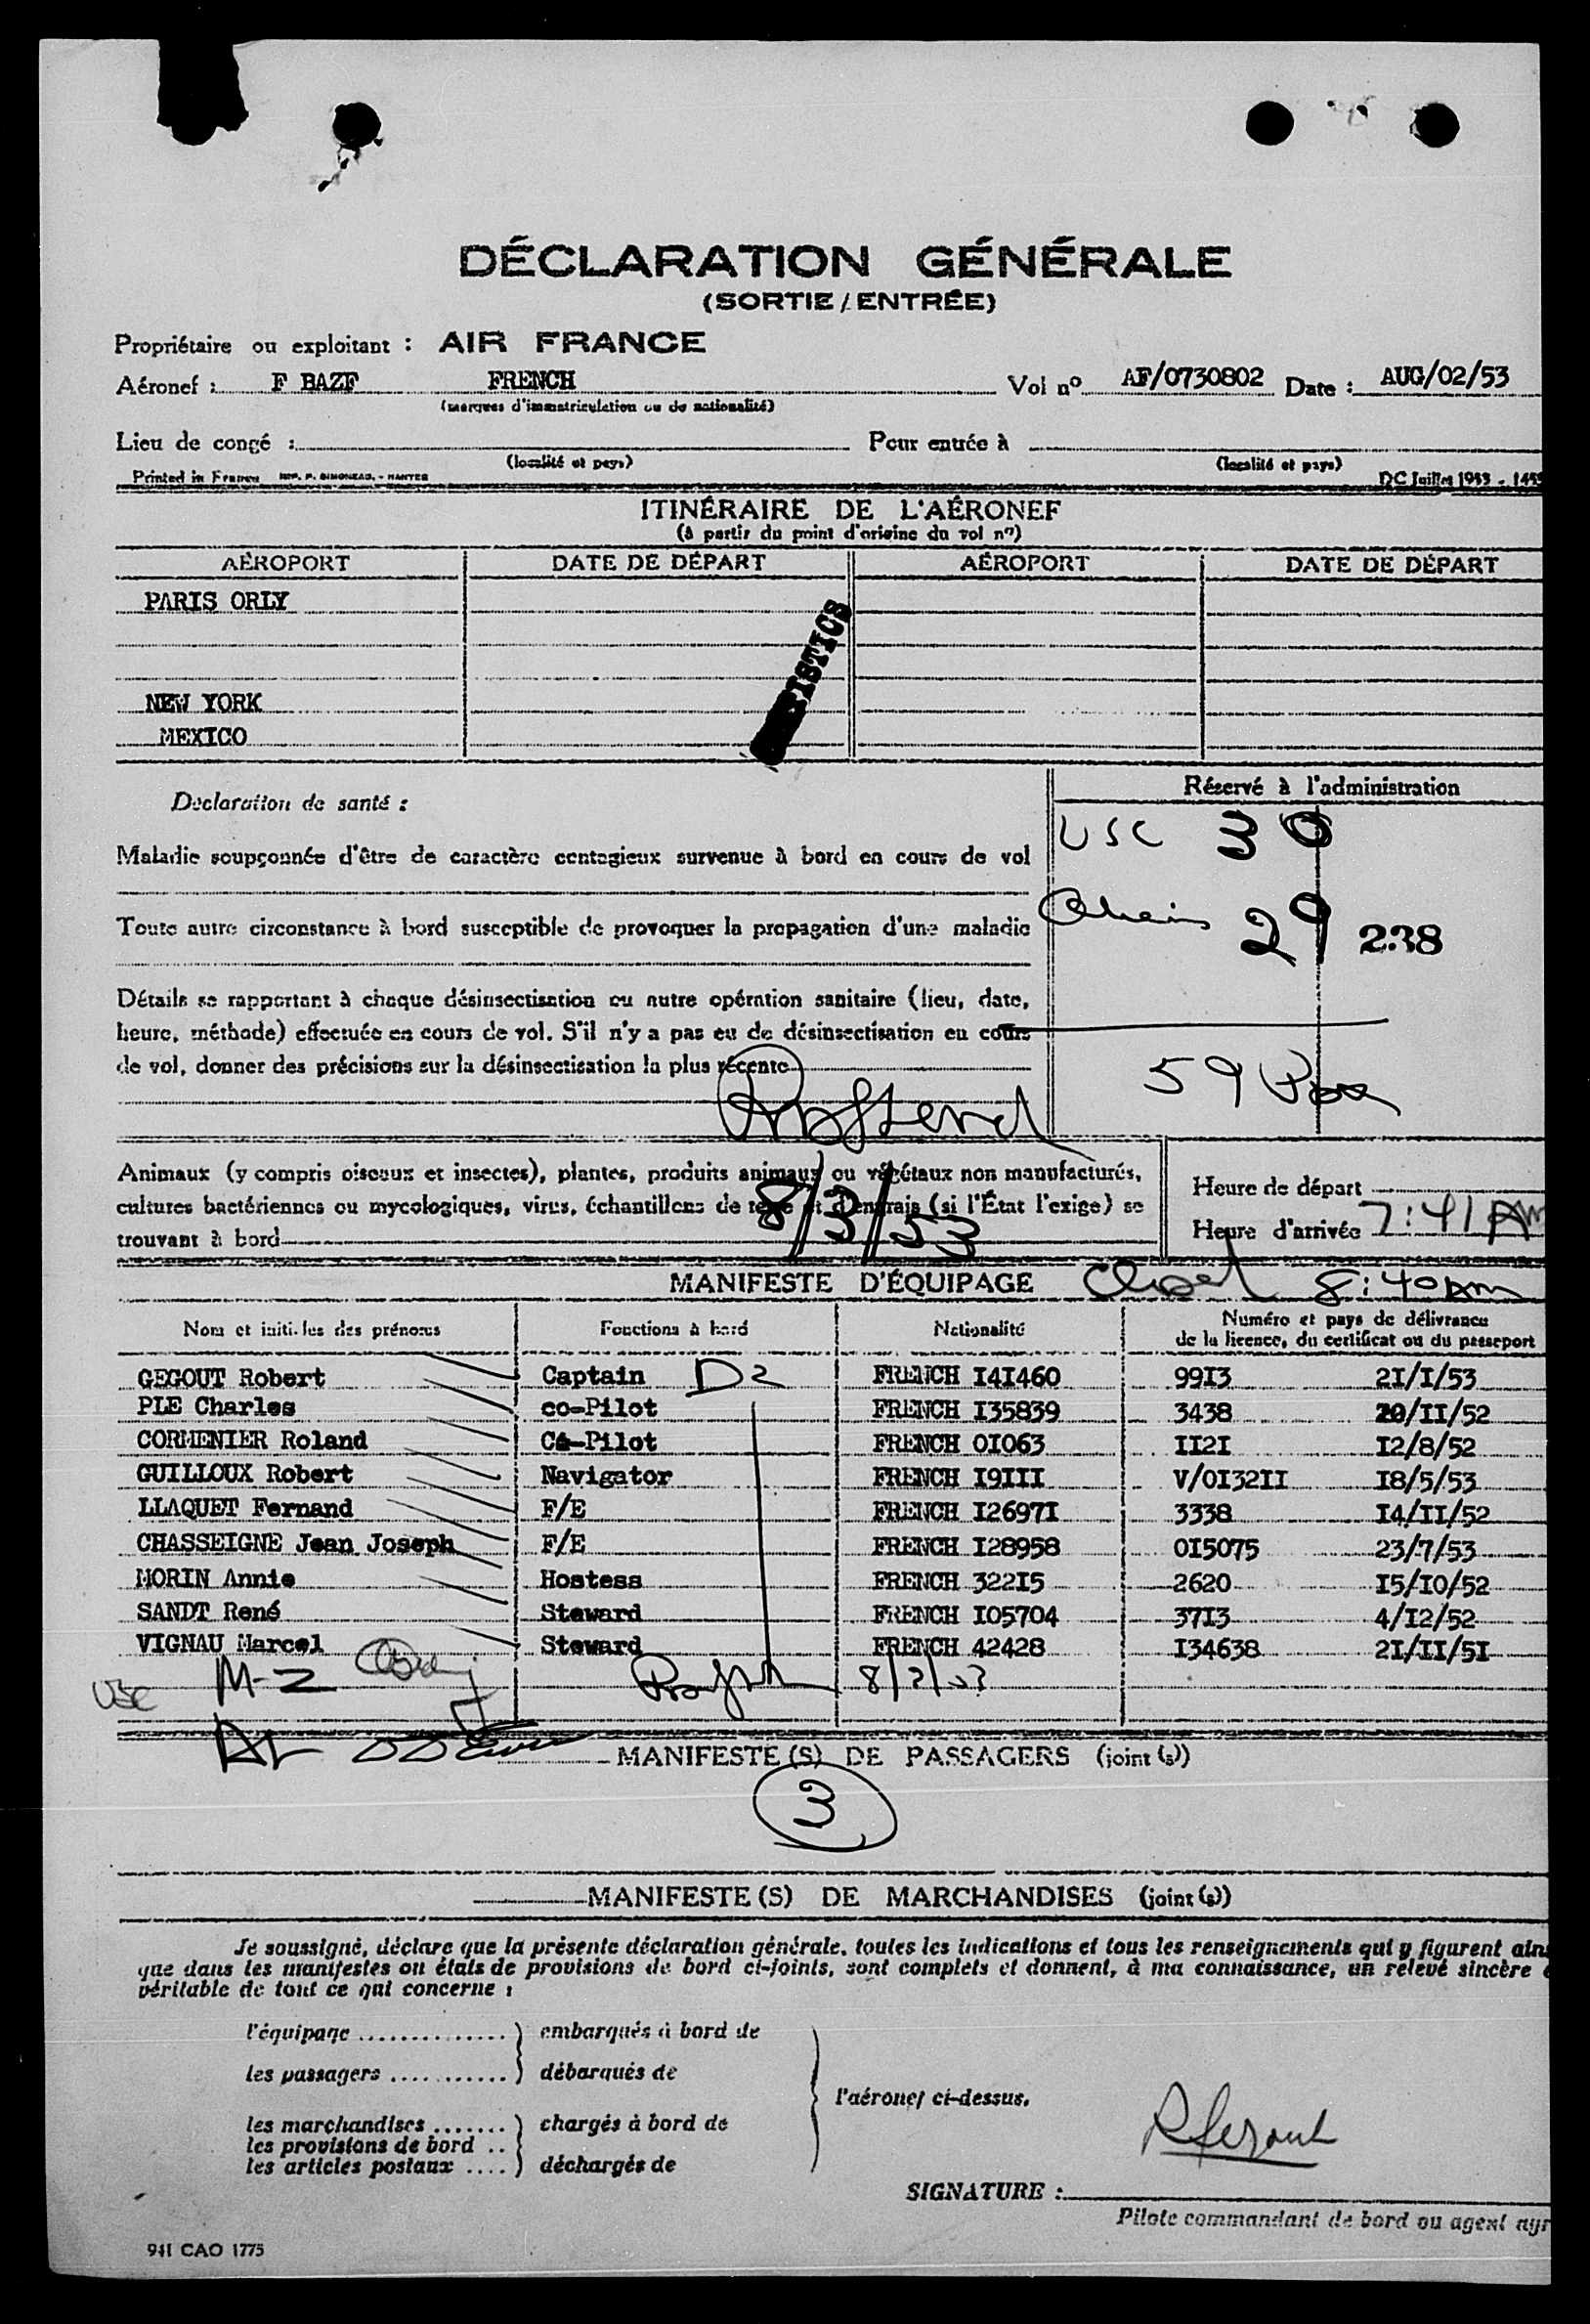 DÉCLARATION GÉNÉRALE
(SORTIE / ENTRÉE)
Propriétaire ou exploitant : AIR FRANCE
Aéronef : F BAZF FRENCH Vol nº AF/0730802 Date : AUG/02/53
(marques d'immatriculation ou de nationalité)
Lieu de congé : Pour entrée à
(localité et pays) (localité et pays)
Printed in France IMP. P. SIMONEAU. - NANTES DC Juillet 1953 - 145
ITINÉRAIRE DE L'AÉRONEF
(à partir du point d'origine du vol nº)
AÉROPORT DATE DE DÉPART AÉROPORT DATE DE DÉPART
PARIS ORLY
NEW YORK
MEXICO
Déclaration de santé :
Réservé à l'administration
USC 30
Maladie soupçonnée d'être de caractère contagieux survenue à bord en cours de vol
Toute autre circonstance à bord susceptible de provoquer la propagation d'une maladie
29 238
Détails se rapportant à chaque désinsectisation ou autre opération sanitaire (lieu, date,
heure, méthode) effectuée en cours de vol. S'il n'y a pas eu de désinsectisation en cours
de vol, donner des précisions sur la désinsectisation la plus récente
59
Animaux (y compris oiseaux et insectes), plantes, produits animaux ou végétaux non manufacturés,
cultures bactériennes ou mycologiques, virus, échantillons de terre et d'engrais (si l'État l'exige) se
trouvant à bord
8/3/53
Heure de départ
Heure d'arrivée 7:41 AM
MANIFESTE D'ÉQUIPAGE 8:40 am
Nom et initiales des prénoms Fonctions à bord Nationalité Numéro et pays de délivrance
de la licence, du certificat ou du passeport
GEGOUT Robert Captain D2 FRENCH I4I460 99I3 2I/I/53
PLE Charles co-Pilot FRENCH I35839 3438 20/II/52
CORMENIER Roland Co-Pilot FRENCH OI063 II2I I2/8/52
GUILLOUX Robert Navigator FRENCH I9III V/OI32II I8/5/53
LLAQUET Fernand F/E FRENCH I2697I 3338 I4/II/52
CHASSEIGNE Jean Joseph F/E FRENCH I28958 OI5075 23/7/53
MORIN Annie Hostess FRENCH 322I5 2620 I5/IO/52
SANDT René Steward FRENCH IO5704 37I3 4/I2/52
VIGNAU Marcel Steward FRENCH 42428 I34638 2I/II/5I
USC M-2
MANIFESTE (S) DE PASSAGERS (joint (s))
3
MANIFESTE (S) DE MARCHANDISES (joint (s))
Je soussigné, déclare que la présente déclaration générale, toutes les indications et tous les renseignements qui y figurent ain
que dans les manifestes ou états de provisions de bord ci-joints, sont complets et donnent, à ma connaissance, un relevé sincère
véritable de tout ce qui concerne :
l'équipage .............. ) embarqués à bord de
les passagers ........... ) débarqués de
l'aéronef ci-dessus.
les marchandises ....... ) chargés à bord de
les provisions de bord ..
les articles postaux .... ) déchargés de
SIGNATURE :
Pilote commandant de bord ou agent
941 CAO 1775